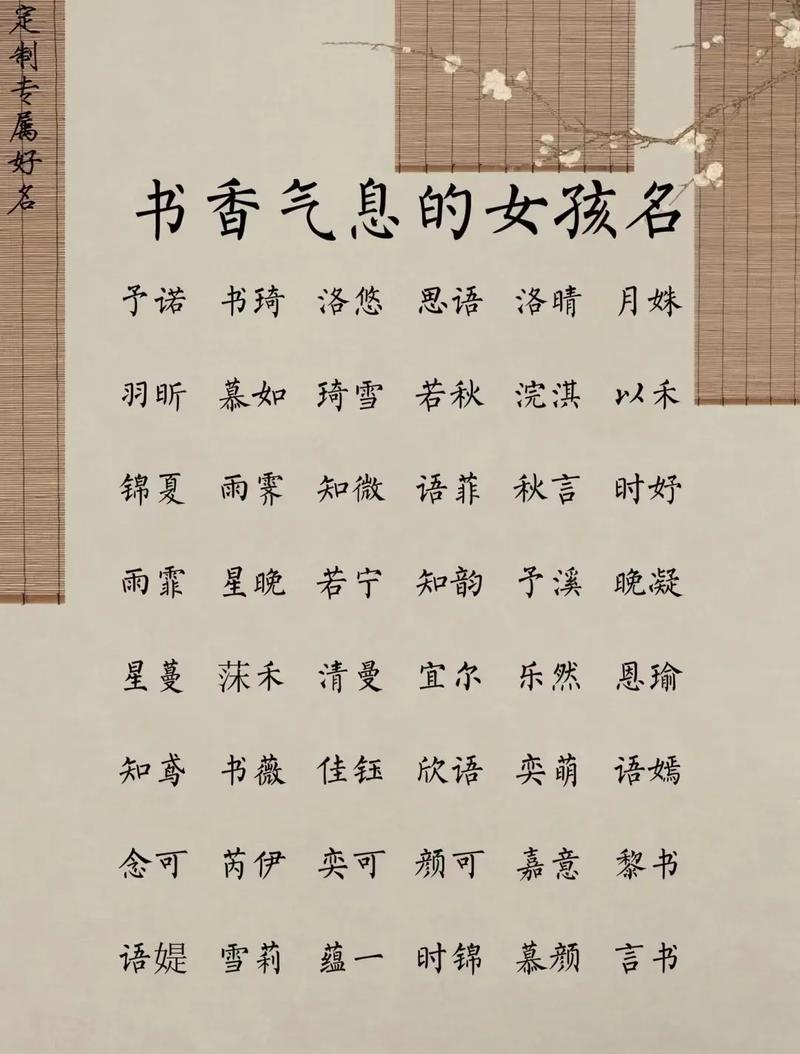 定制专属好名
书香气息的女孩名
予诺 书琦 洛悠 思语 洛晴 月姝
羽昕 慕如 琦雪 若秋 浣淇 以禾
锦夏 雨霁 知微 语菲 秋言 时妤
雨霏 星晚 若宁 知韵 予溪 晚凝
星蔓 莯禾 清曼 宜尔 乐然 恩瑜
知鸢 书薇 佳钰 欣语 奕萌 语嫣
念可 芮伊 奕可 颜可 嘉意 黎书
语媞 雪莉 蕴一 时锦 慕颜 言书